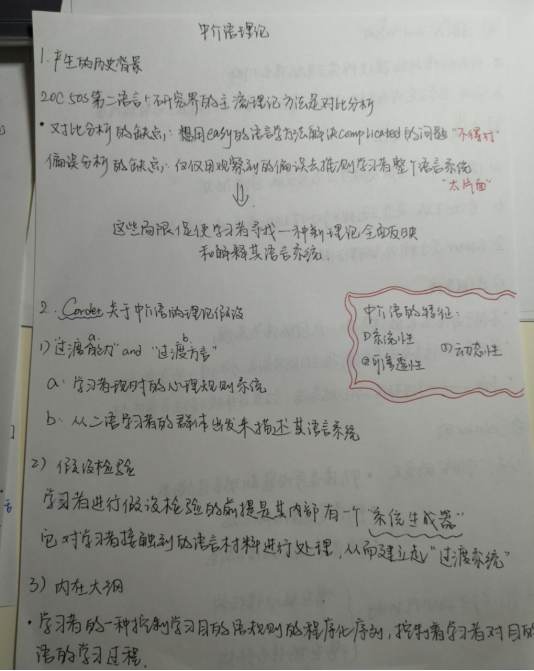 中介语理论
1. 产生的历史背景
20C 50S 第二语言习得研究界的主流理论方法是对比分析
· 对比分析的缺点: 想用easy的语言学方法解决complicated的问题 "不得行"
偏误分析的缺点: 仅仅用观察到的偏误去推测学习者整个语言系统
"太片面"
这些局限促使学习者寻找一种新理论全面反映
和解释其语言系统.
2. Corder 关于中介语的理论假设
中介语的特征:
①系统性
②可渗透性 ③动态性
1) "过渡能力" and "过渡方言"
a b
a. 学习者现时的心理规则系统
b. 从二语学习者的群体出发来描述其语言系统
2) 假设检验
学习者进行假设检验的前提是其内部有一个 "系统生成器"
它对学习者接触到的语言材料进行处理, 从而建立起 "过渡系统"
3) 内在大纲
· 学习者的一种控制学习目的语规则的程序化序列, 控制着学习者对目的
语的学习过程.